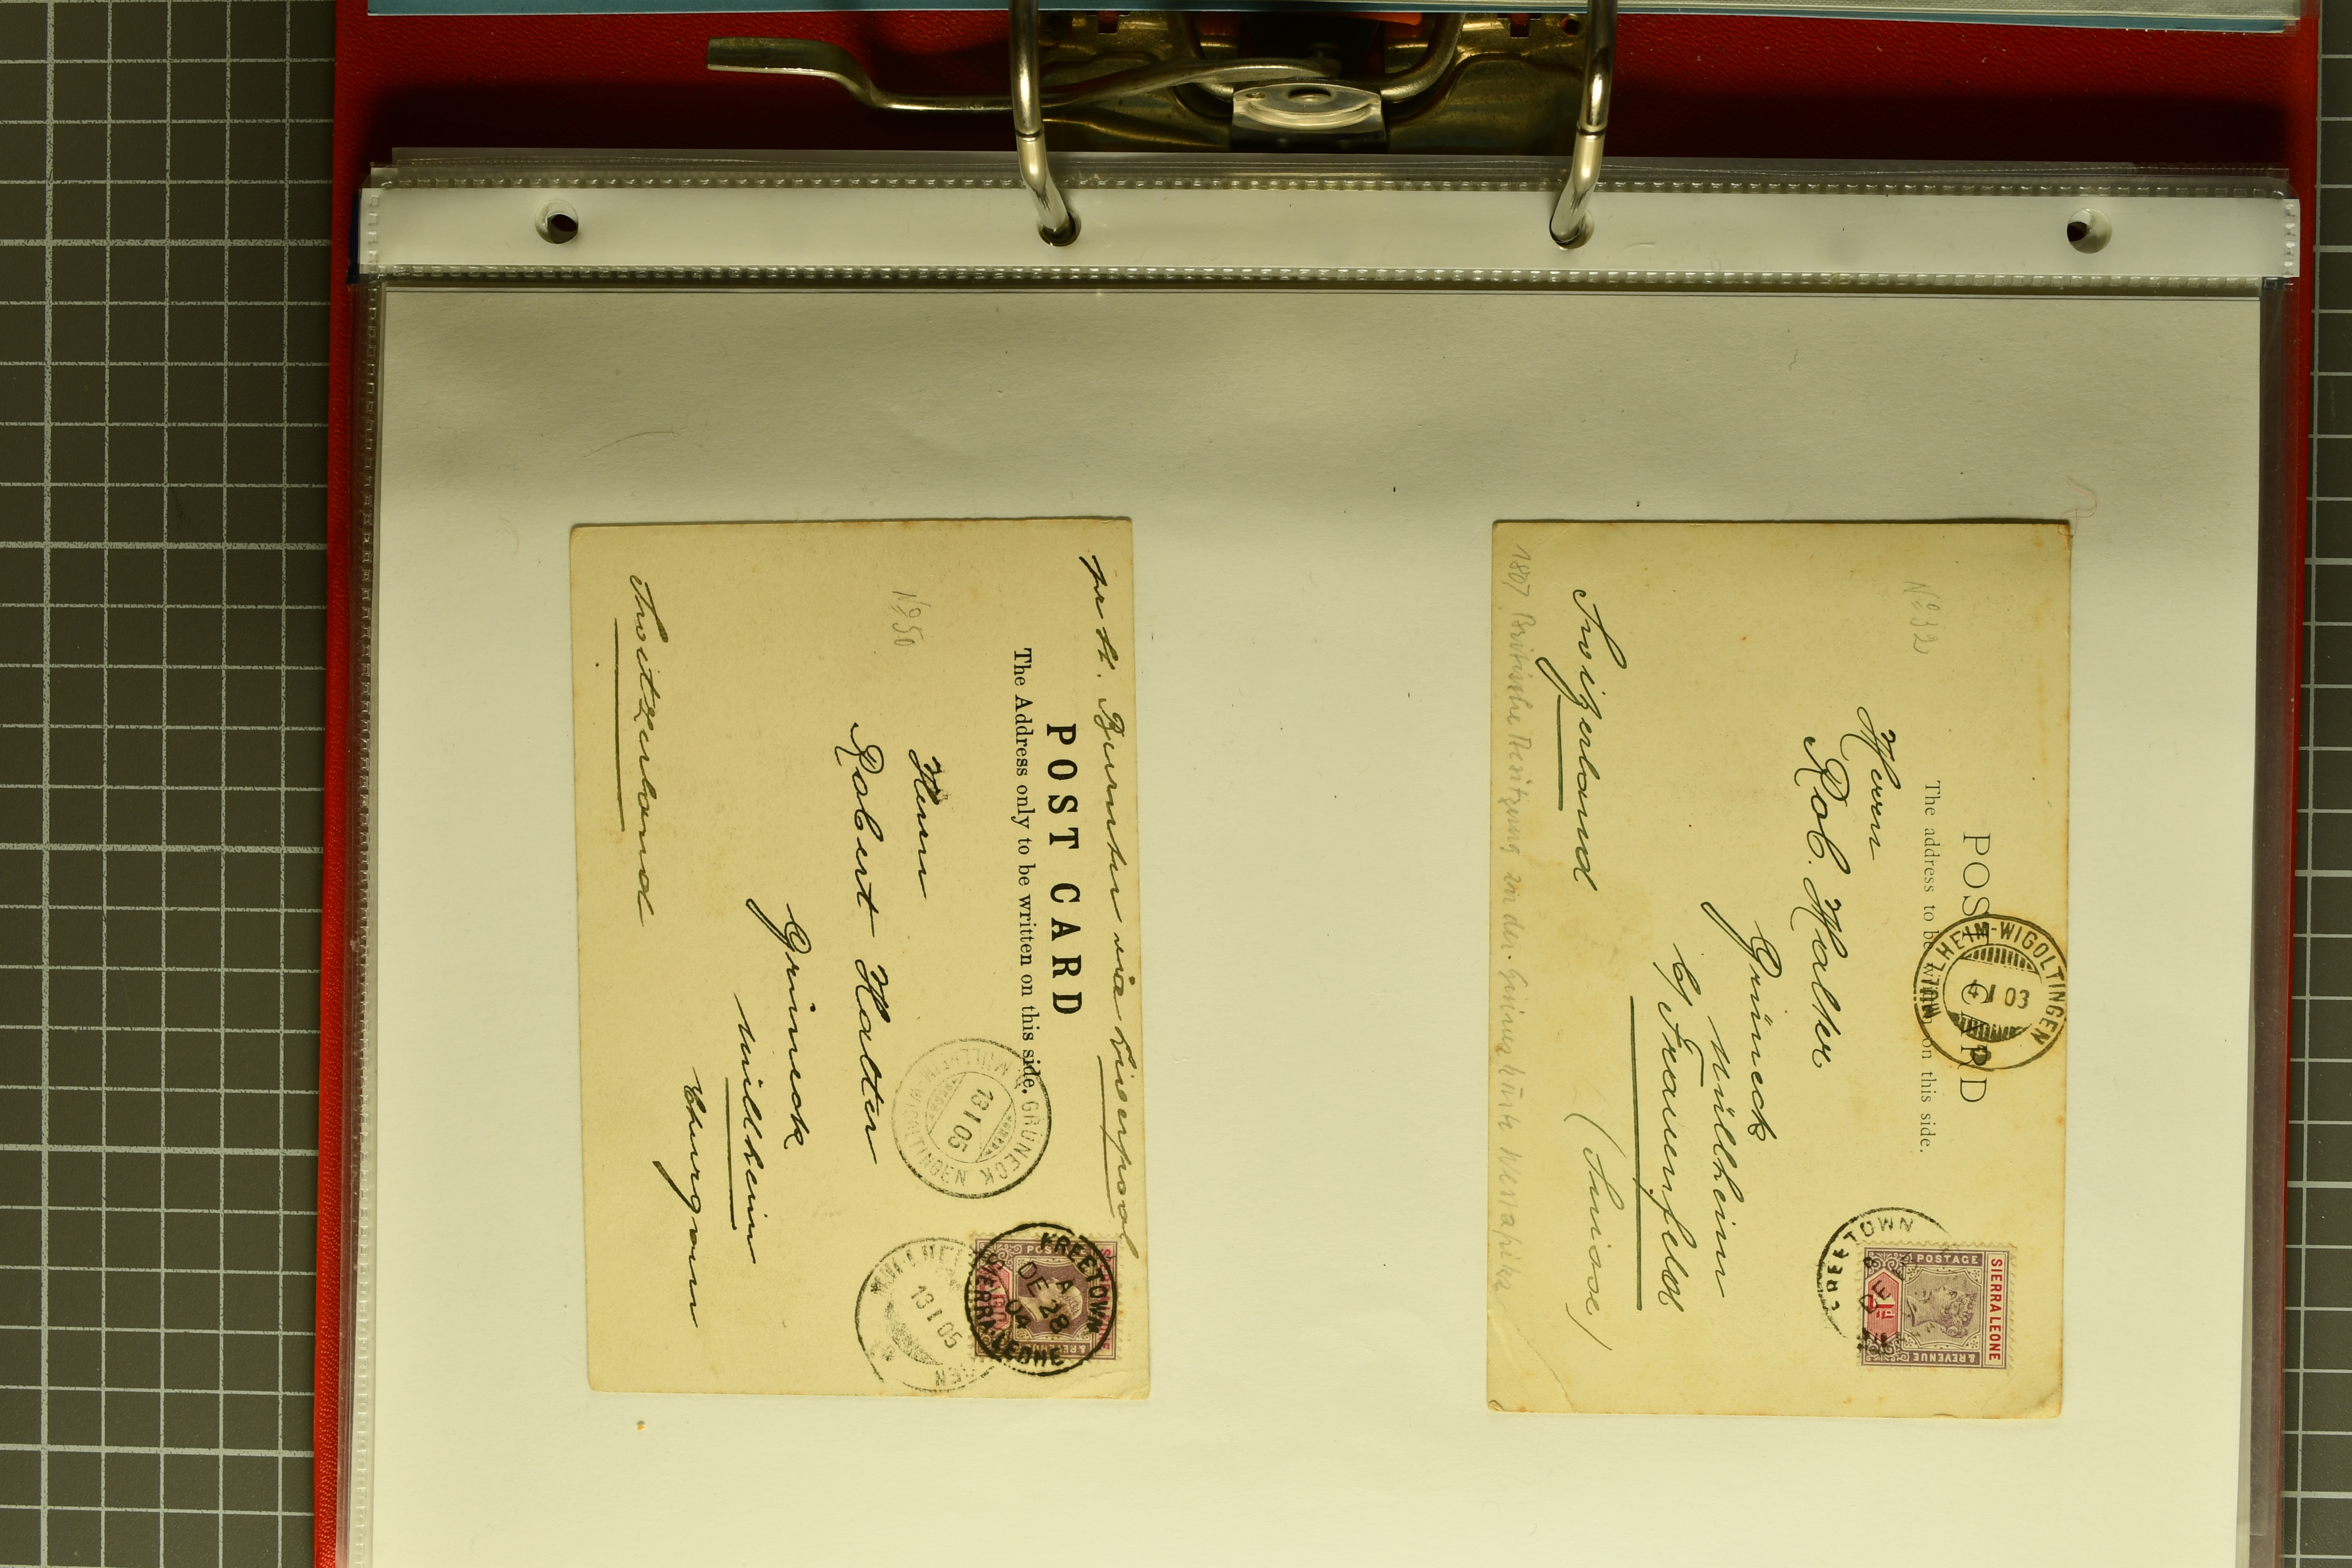 POST CARD
The address to be written on this side.
MÜLLHEIM-WIGOLTINGEN
I 03
SIERRA LEONE
POSTAGE
& REVENUE
1d
FREETOWN
No 32
Herrn
Rob. Halter
Grüneck
Müllheim
b/ Frauenfeld
Switzerland
(Suisse)
1897 Britische Besitzung in der Guinea küste Westafrika
per St. Burutu via Liverpool
POST CARD
The Address only to be written on this side.
No 50
GRÜNECK
MÜLLHEIM-WIGOLTINGEN
13 I 05
FREETOWN
A
DE 28
04
SIERRA LEONE
13 I 05
Herrn
Robert Halter
Grüneck
Müllheim
Thurgau
Switzerland